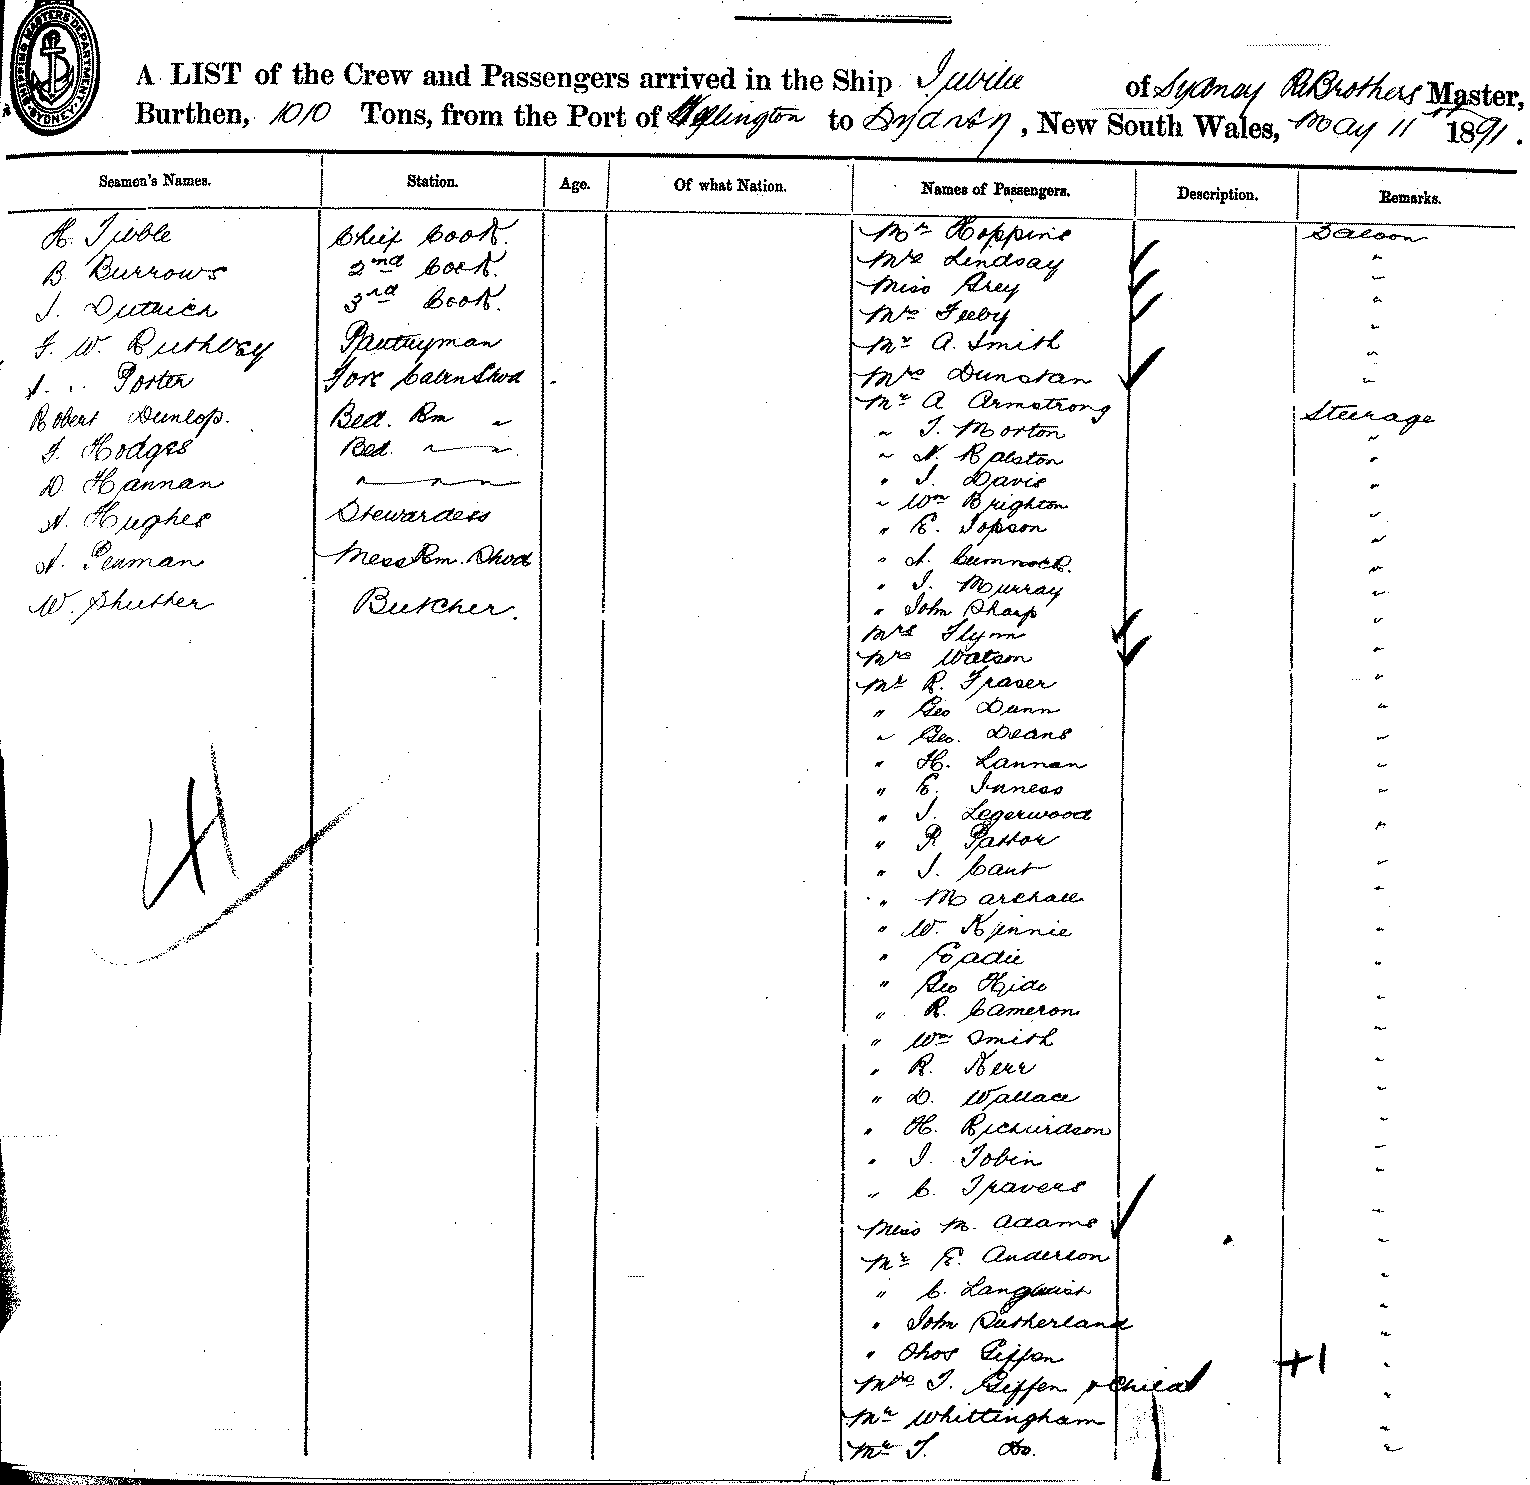 SHIPPING MASTERS DEPARTMENT SYDNEY
A LIST of the Crew and Passengers arrived in the Ship Jubilee of Sydney R Brothers Master,
Burthen, 1010 Tons, from the Port of Wellington to Sydney, New South Wales, May 11th 1891.
Seamen's Names. Station. Age. Of what Nation. Names of Passengers. Description. Remarks.
H. Tibble Chief Cook. Mr Hoppins Saloon
B. Burrows 2nd Cook. Mrs Lindsay "
3rd Cook. Miss Grey "
Mrs "
F. W. Pantryman Mr A. Smith "
Porter Fore Cabin Stwd Mrs Dunstan "
Robert Dunlop. Bed. Rm " Mr A Armstrong Steerage
" J. Morton "
J. Hodges Bed. " " " N. Ralston "
D. Hannan " " " " J. Davis "
" Wm Brighton "
N. Hughes Stewardess " E. Jopson "
A. Penman Mess Rm. Stwd " A. Cummock. "
" J. Murray "
W. Shutter Butcher. " John Sharp "
Mrs Flynn "
Mrs Watson "
Mr R. Fraser "
" Geo Dunn "
" Geo. Deans "
" H. Lannan "
" E. Inness "
" J. Legerwood "
41 " R "
" J. Cant "
" Marshall "
" W. Kinnie "
" Eadie "
" Geo "
" R. Cameron "
" Wm Smith "
" R. Kerr "
" D. Wallace "
" H. Richardson "
" J. Tobin "
" C. Travers "
Miss M. Adams "
Mr E. Anderson "
" C. Langquist "
" John Sutherland "
" Thos Giffen +1 "
Mrs T. Giffen & Child "
Mr Whittingham "
Mr T. Do. "